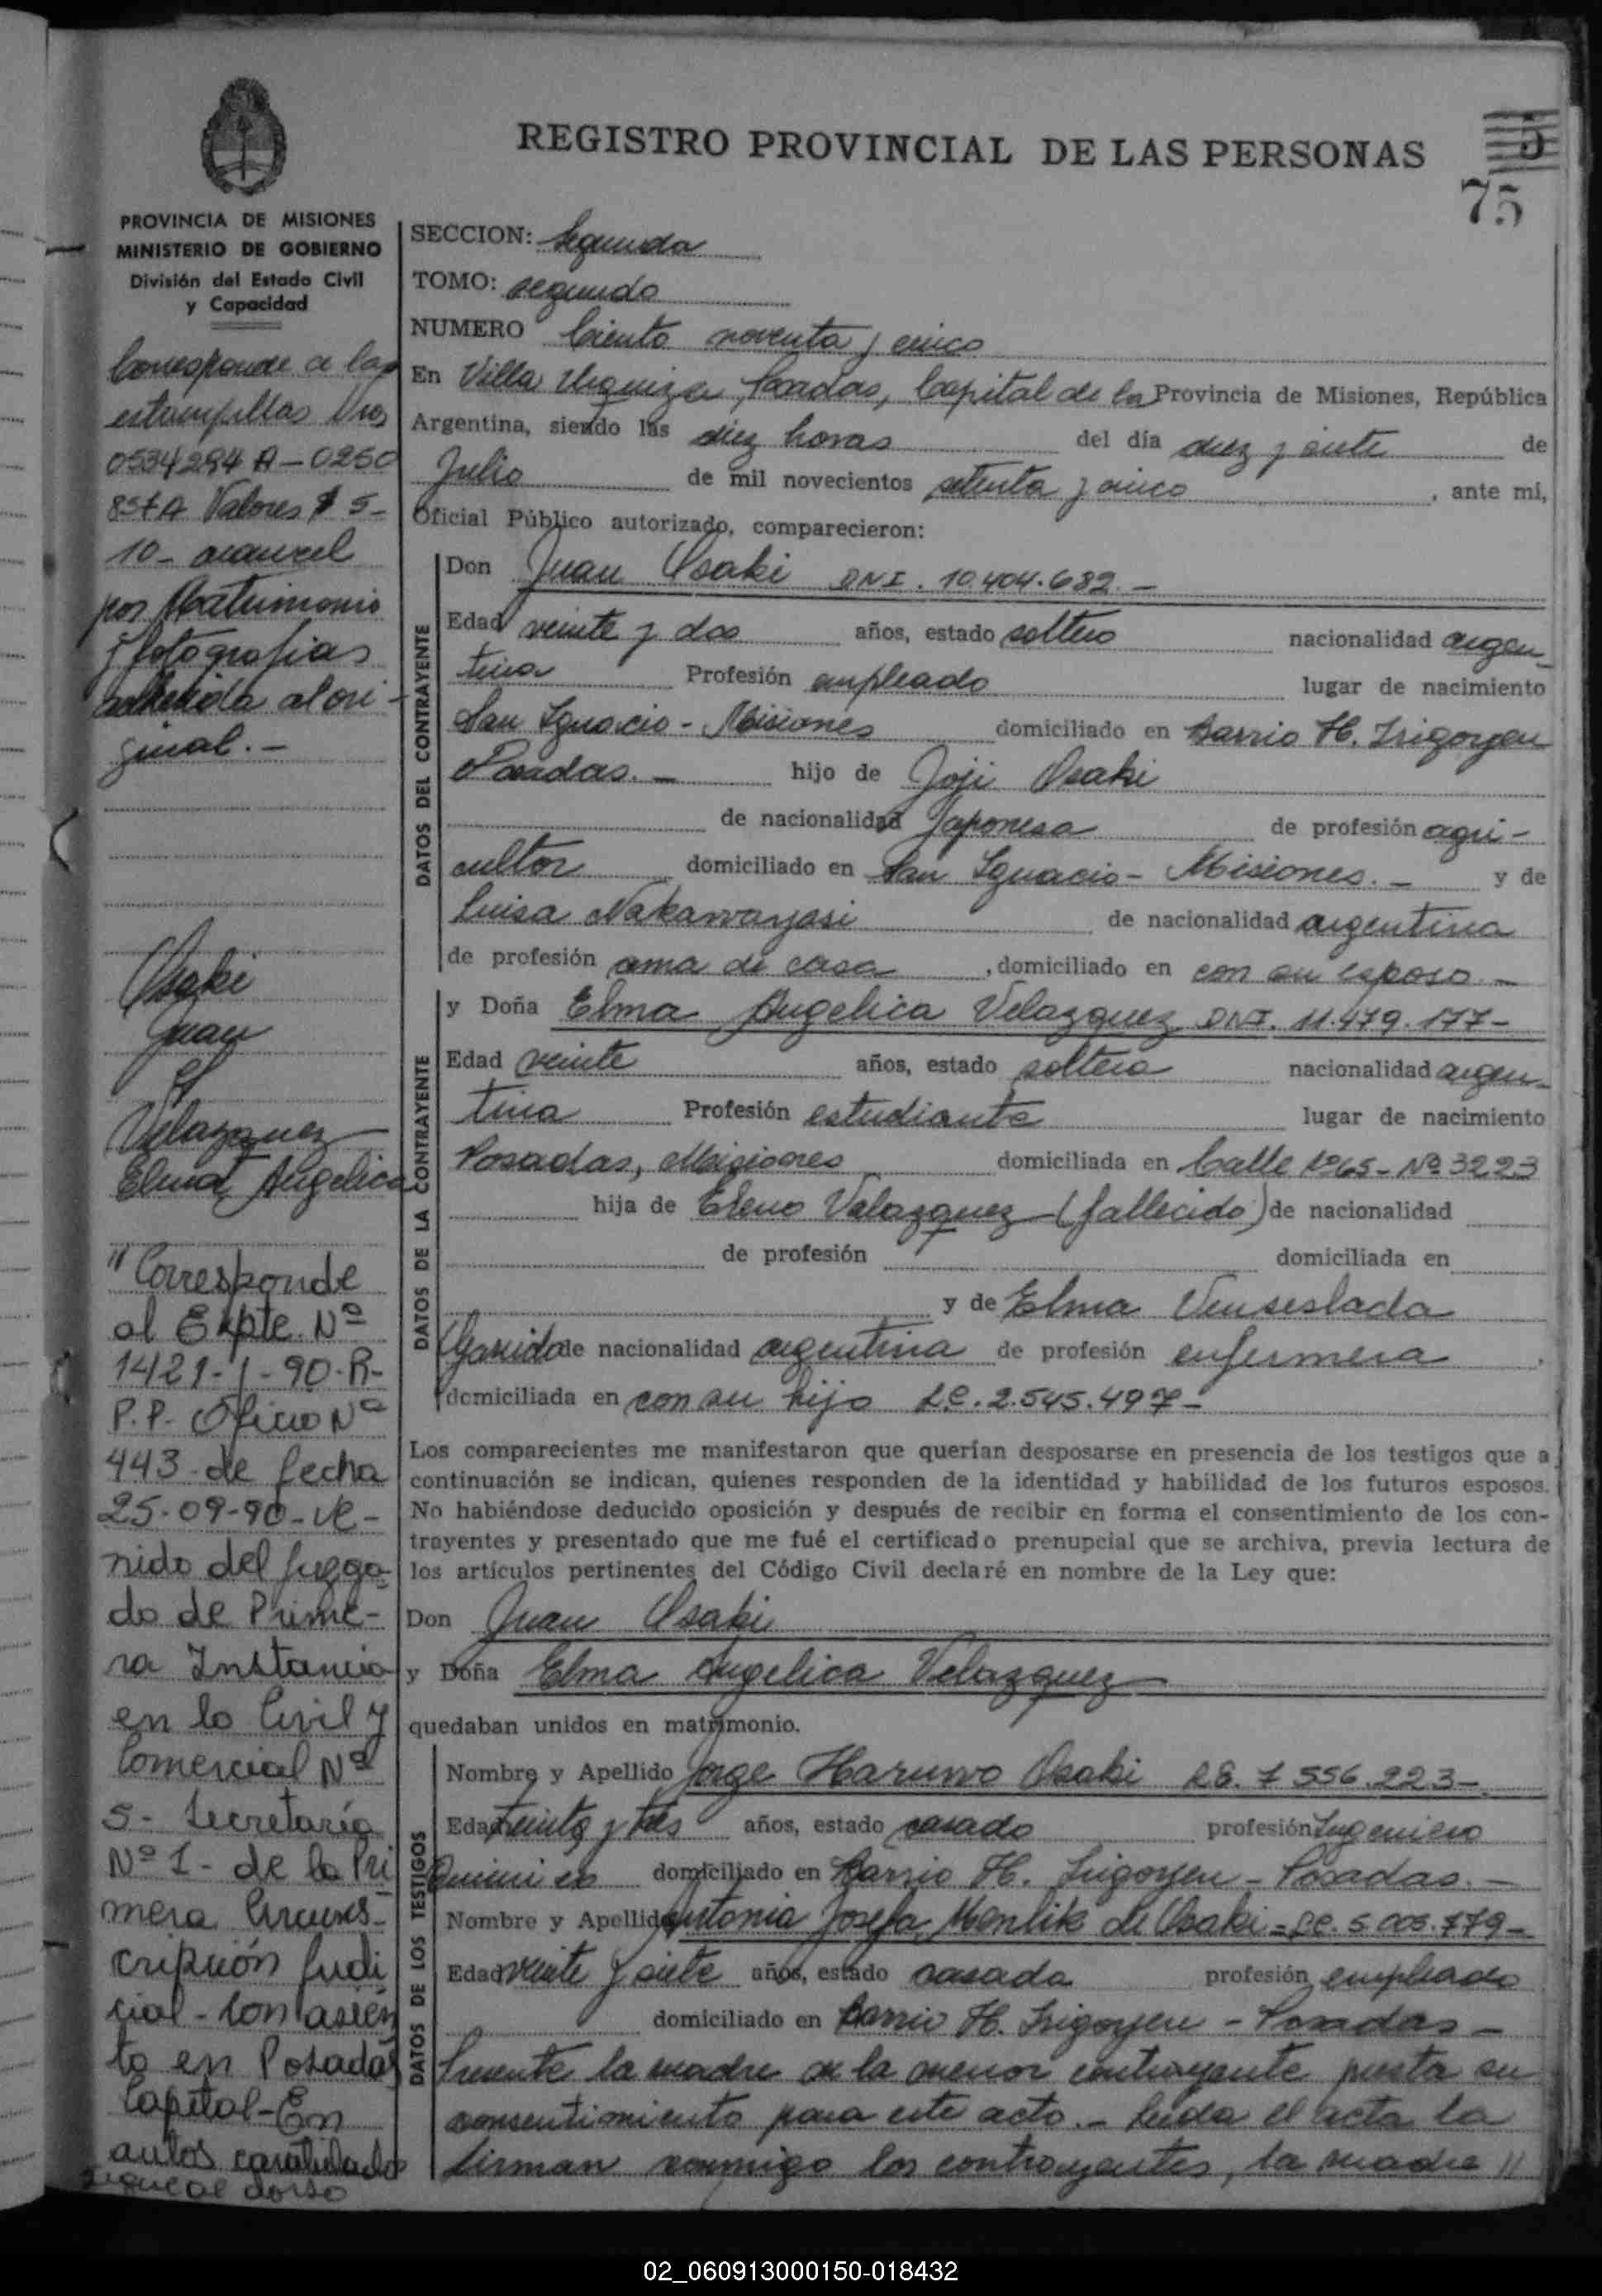 REGISTRO PROVINCIAL DE LAS PERSONAS
5
75
PROVINCIA DE MISIONES
MINISTERIO DE GOBIERNO
División del Estado Civil
y Capacidad
Corresponde a las
estampillas Nros
0534294 A - 0250
857A Valores $ 5-
10- arancel
por Matrimonio
y fotografias
adherida al ori-
ginal.-
Osaki
Juan
y
Velazquez
Elma Angelica
"Corresponde
al Expte. Nº
1421-1-90-R-
P.P. Oficio Nº
443-de fecha
25-09-90-Ve-
nido del Juzga-
do de Prime-
ra Instancia
en lo Civil y
Comercial Nº
5- Secretaría
Nº 1- de la Pri
mera Circuns-
cripción Judi
cial- Con asien
to en Posadas
Capital-En
autos caratulado
sigue al dorso
SECCION: Segunda
TOMO: segundo
NUMERO Ciento noventa y cinco
En Villa Urquiza, Posadas, Capital de la Provincia de Misiones, República
Argentina, siendo las diez horas del día diez y siete de
Julio de mil novecientos setenta y cinco, ante mí,
Oficial Público autorizado, comparecieron:
DATOS DEL CONTRAYENTE
Don Juan Osaki DNI. 10.404.682.-
Edad veinte y dos años, estado soltero nacionalidad argen-
tina Profesión empleado lugar de nacimiento
San Ignacio - Misiones domiciliado en Barrio H. Irigoyen
Posadas.- hijo de Joji Osaki
de nacionalidad Japonesa de profesión agri-
cultor domiciliado en San Ignacio - Misiones.- y de
Luisa Nakawayasi de nacionalidad argentina
de profesión ama de casa, domiciliado en con su esposo.-
DATOS DE LA CONTRAYENTE
y Doña Elma Angelica Velazquez DNI. 11.479.177-
Edad veinte años, estado soltera nacionalidad argen-
tina Profesión estudiante lugar de nacimiento
Posadas, Misiones domiciliada en Calle Nº65-Nº 3223
hija de Eleno Velazquez (fallecido) de nacionalidad
de profesión domiciliada en
y de Elma Venseslada
Garrido de nacionalidad argentina de profesión enfermera,
domiciliada en con su hijo L.C. 2.545.497-
Los comparecientes me manifestaron que querían desposarse en presencia de los testigos que a
continuación se indican, quienes responden de la identidad y habilidad de los futuros esposos.
No habiéndose deducido oposición y después de recibir en forma el consentimiento de los con-
trayentes y presentado que me fué el certificado prenupcial que se archiva, previa lectura de
los artículos pertinentes del Código Civil declaré en nombre de la Ley que:
Don Juan Osaki
y Doña Elma Angelica Velazquez
quedaban unidos en matrimonio.
DATOS DE LOS TESTIGOS
Nombre y Apellido Jorge Haruwo Osaki L.E. 7 556.223-
Edad treinta y tres años, estado casado profesión Ingeniero
Quimico domiciliado en Barrio H. Irigoyen - Posadas.-
Nombre y Apellido Antonia Josefa Menlik de Osaki = L.C. 5.003.779-
Edad veinte y siete años, estado casada profesión empleada
domiciliado en Barrio H. Irigoyen - Posadas -
Presente la madre de la menor contrayente presta su
consentimiento para este acto.- Leida el acta la
firman conmigo los contrayentes, la madre //
02_060913000150-018432